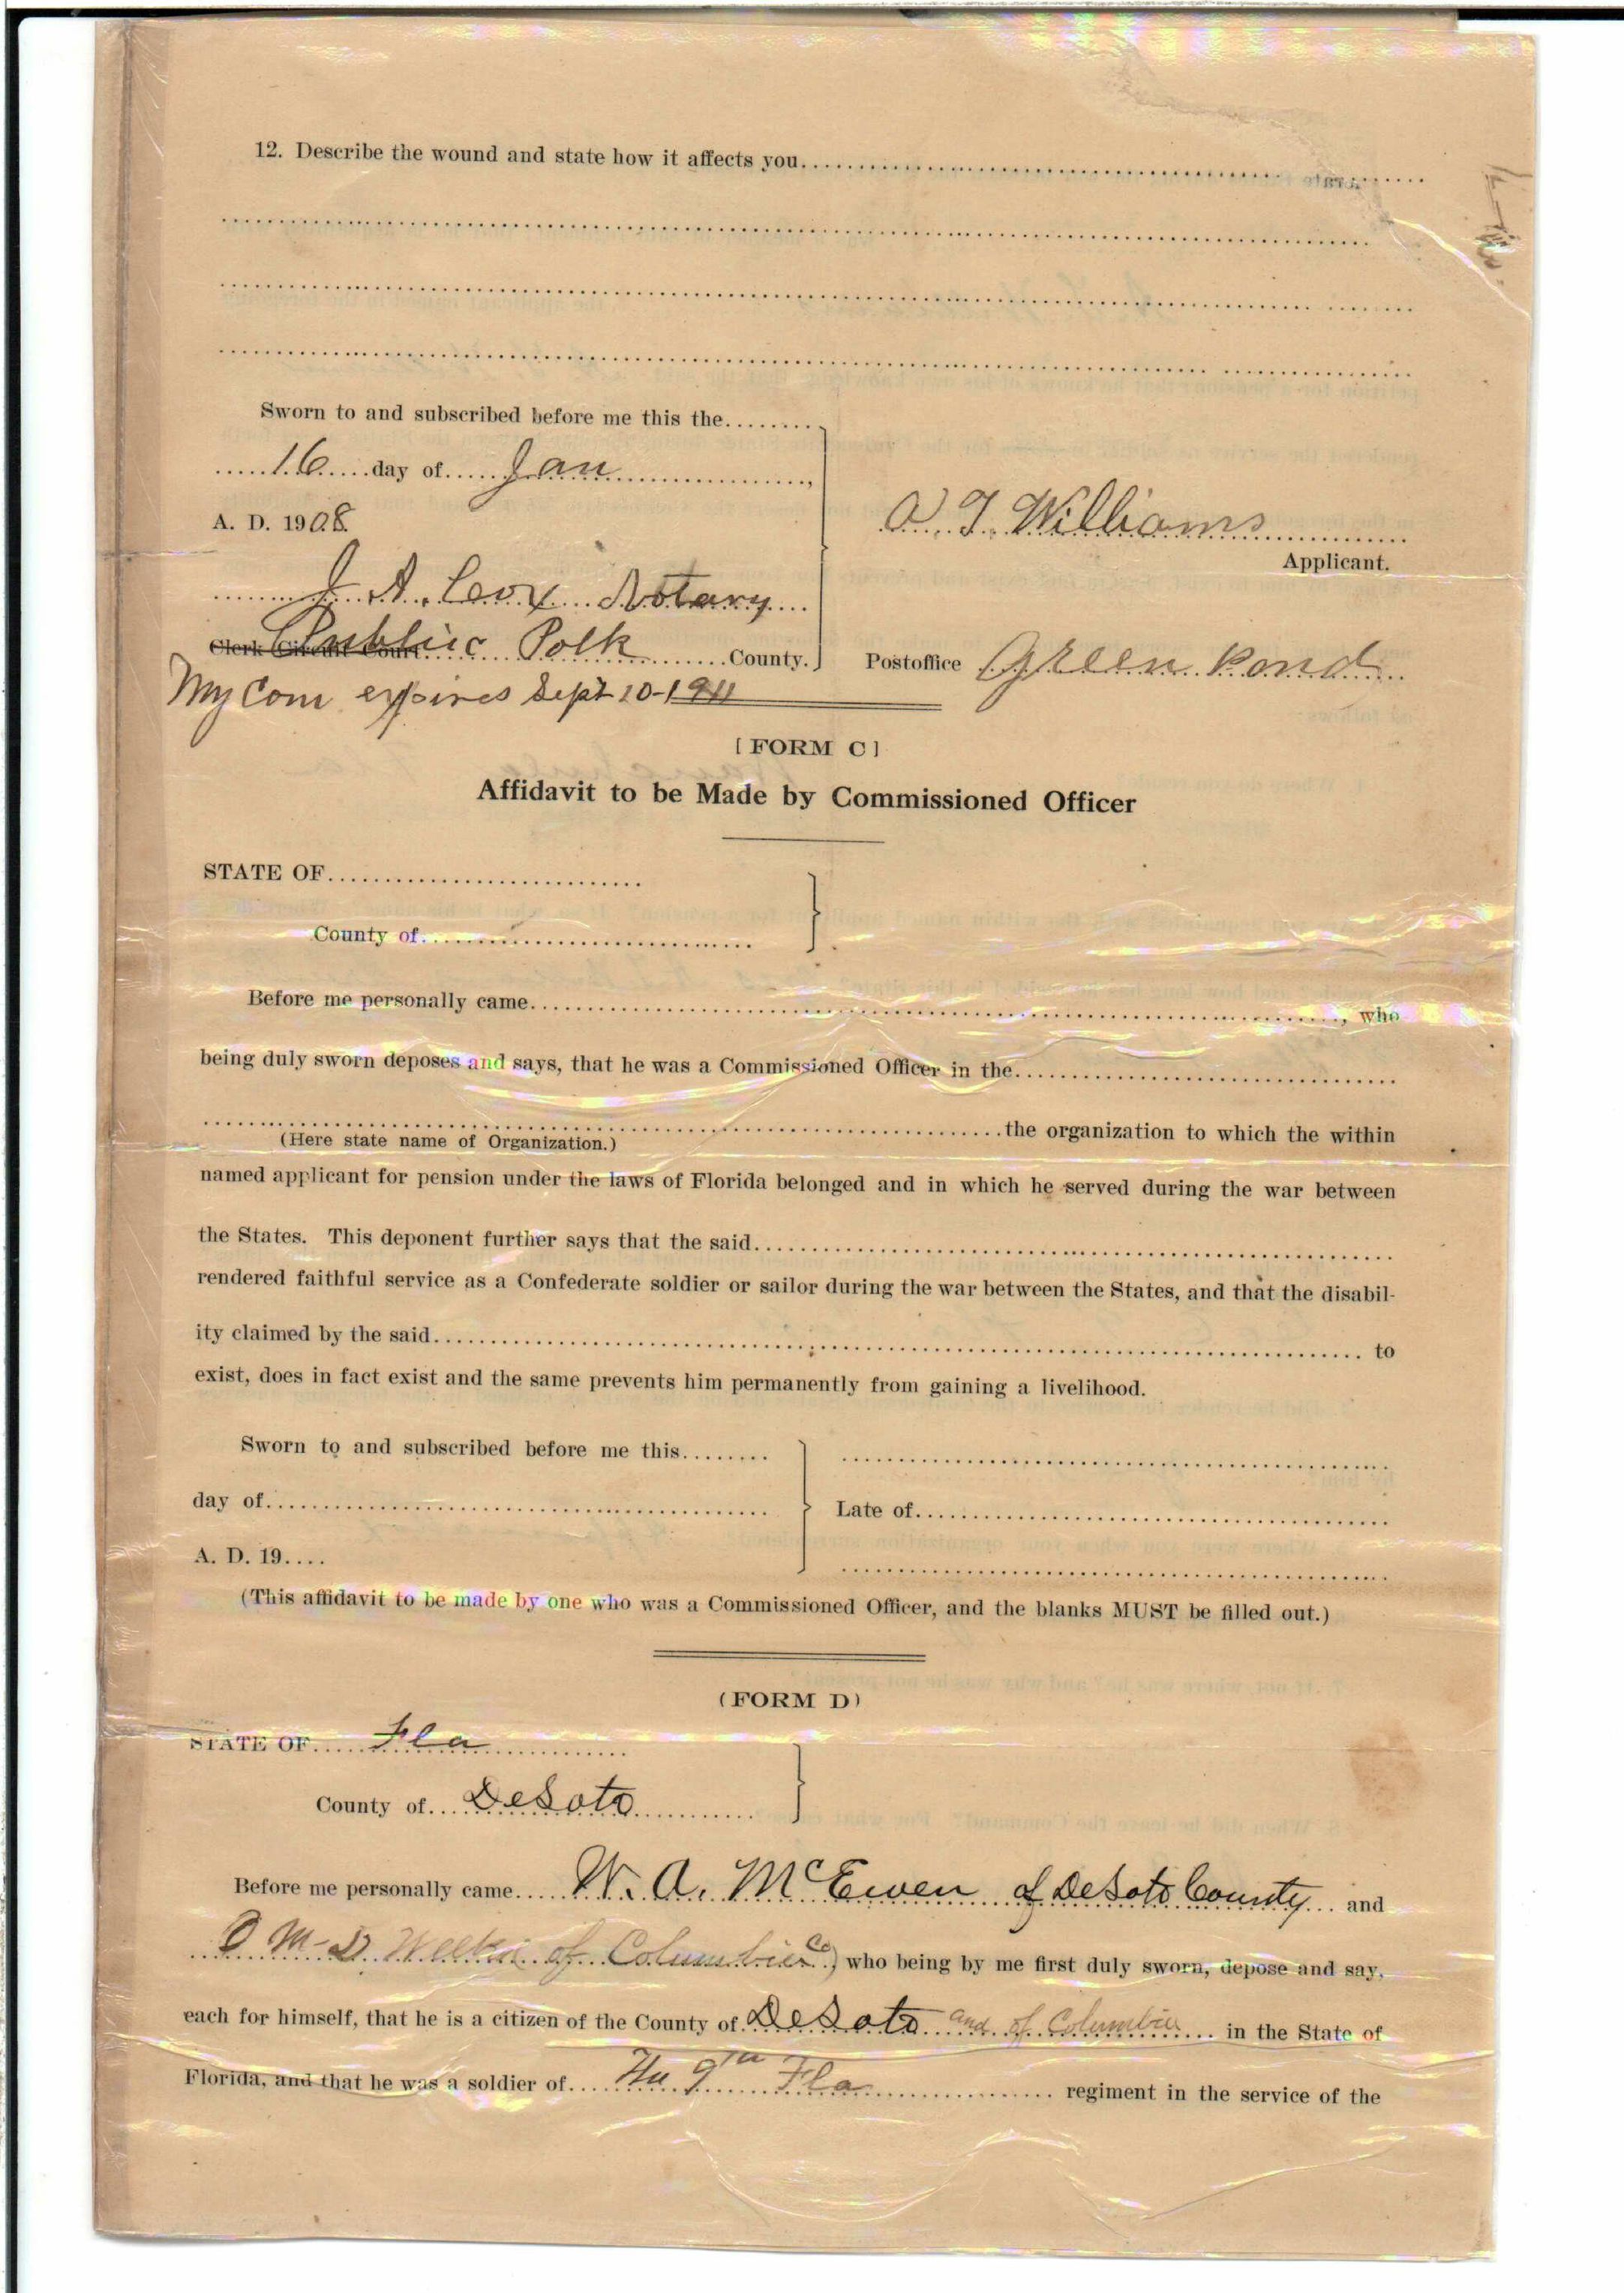 12. Describe the wound and state how it affects you
Sworn to and subscribed before me this the
16 day of Jan
A. D. 1908
J. A. Cox Notary
Clerk Circuit Court Public Polk County.
My Com expires Sept 10-1911
A. T. Williams
Applicant.
Postoffice Green Pond
[FORM C]
Affidavit to be Made by Commissioned Officer
STATE OF
County of
Before me personally came, who
being duly sworn deposes and says, that he was a Commissioned Officer in the
the organization to which the within
(Here state name of Organization.)
named applicant for pension under the laws of Florida belonged and in which he served during the war between
the States. This deponent further says that the said
rendered faithful service as a Confederate soldier or sailor during the war between the States, and that the disabil-
ity claimed by the said to
exist, does in fact exist and the same prevents him permanently from gaining a livelihood.
Sworn to and subscribed before me this
day of
A. D. 19
Late of
(This affidavit to be made by one who was a Commissioned Officer, and the blanks MUST be filled out.)
(FORM D)
STATE OF Fla
County of DeSoto
Before me personally came W. A. McEwen of DeSoto County and
M. D. of Columbia Co) who being by me first duly sworn, depose and say,
each for himself, that he is a citizen of the County of DeSoto and of Columbia in the State of
Florida, and that he was a soldier of 9th Fla regiment in the service of the